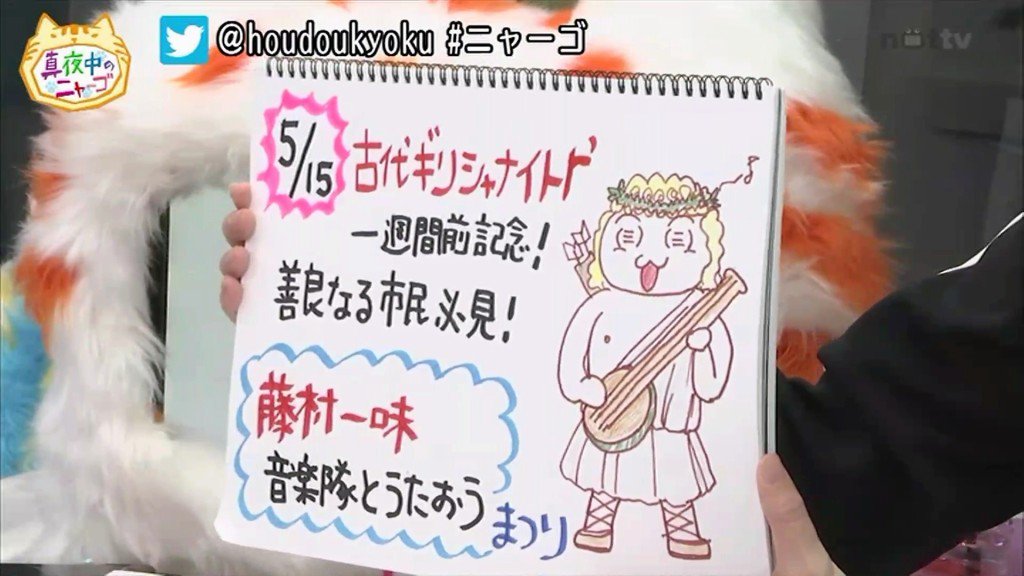 真夜中の
ニャーゴ
@houdoukyoku #ニャーゴ
nottv
5/15
古代ギリシャナイト
一週間前記念!
善良なる市民必見!
藤村一味
音楽隊とうたおう
まつり